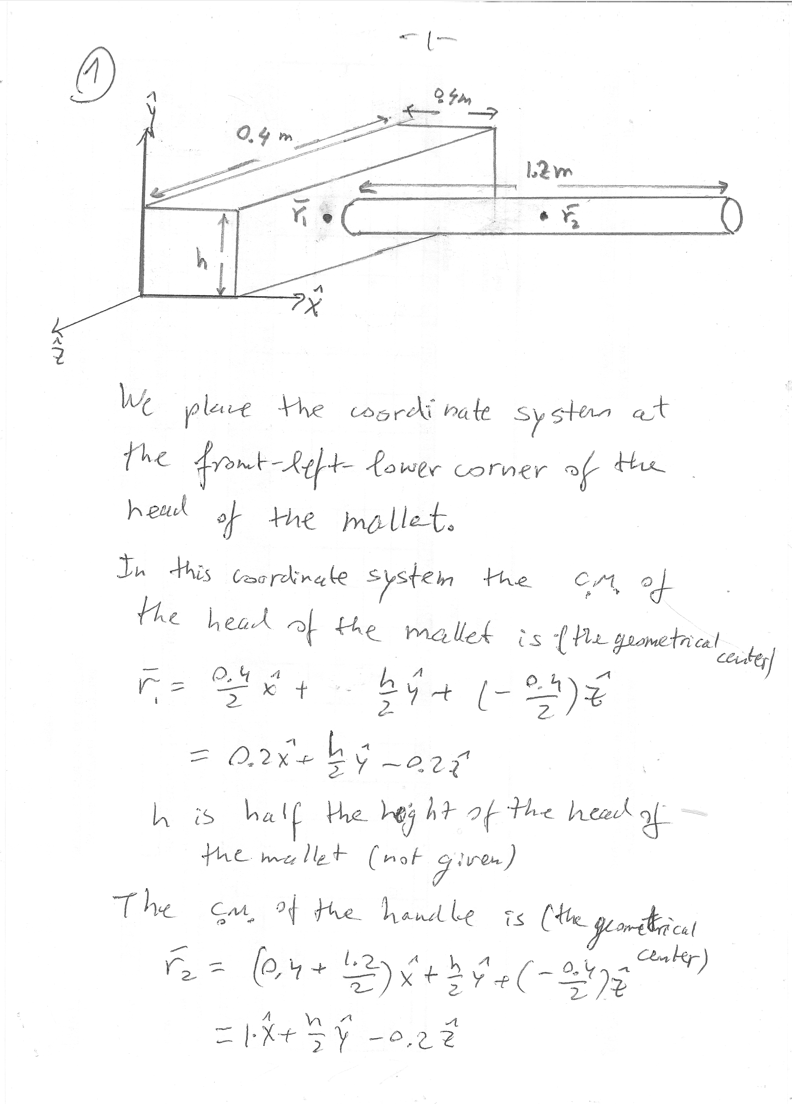 -1-
1
ŷ
0.4 m
0.4m
1.2m
r̄₁
r̄₂
h
x̂
ẑ
We place the coordinate system at
the front-left-lower corner of the
head of the mallet.
In this coordinate system the C.M. of
the head of the mallet is (the geometrical
center)
r̄₁ = 0.4/2 x̂ + h/2 ŷ + (-0.4/2) ẑ
= 0.2x̂ + h/2 ŷ - 0.2ẑ
h is half the height of the head of
the mallet (not given)
The C.M. of the handle is (the geometrical
center)
r̄₂ = (0.4 + 1.2/2) x̂ + h/2 ŷ + (-0.4/2) ẑ
= 1·x̂ + h/2 ŷ - 0.2 ẑ